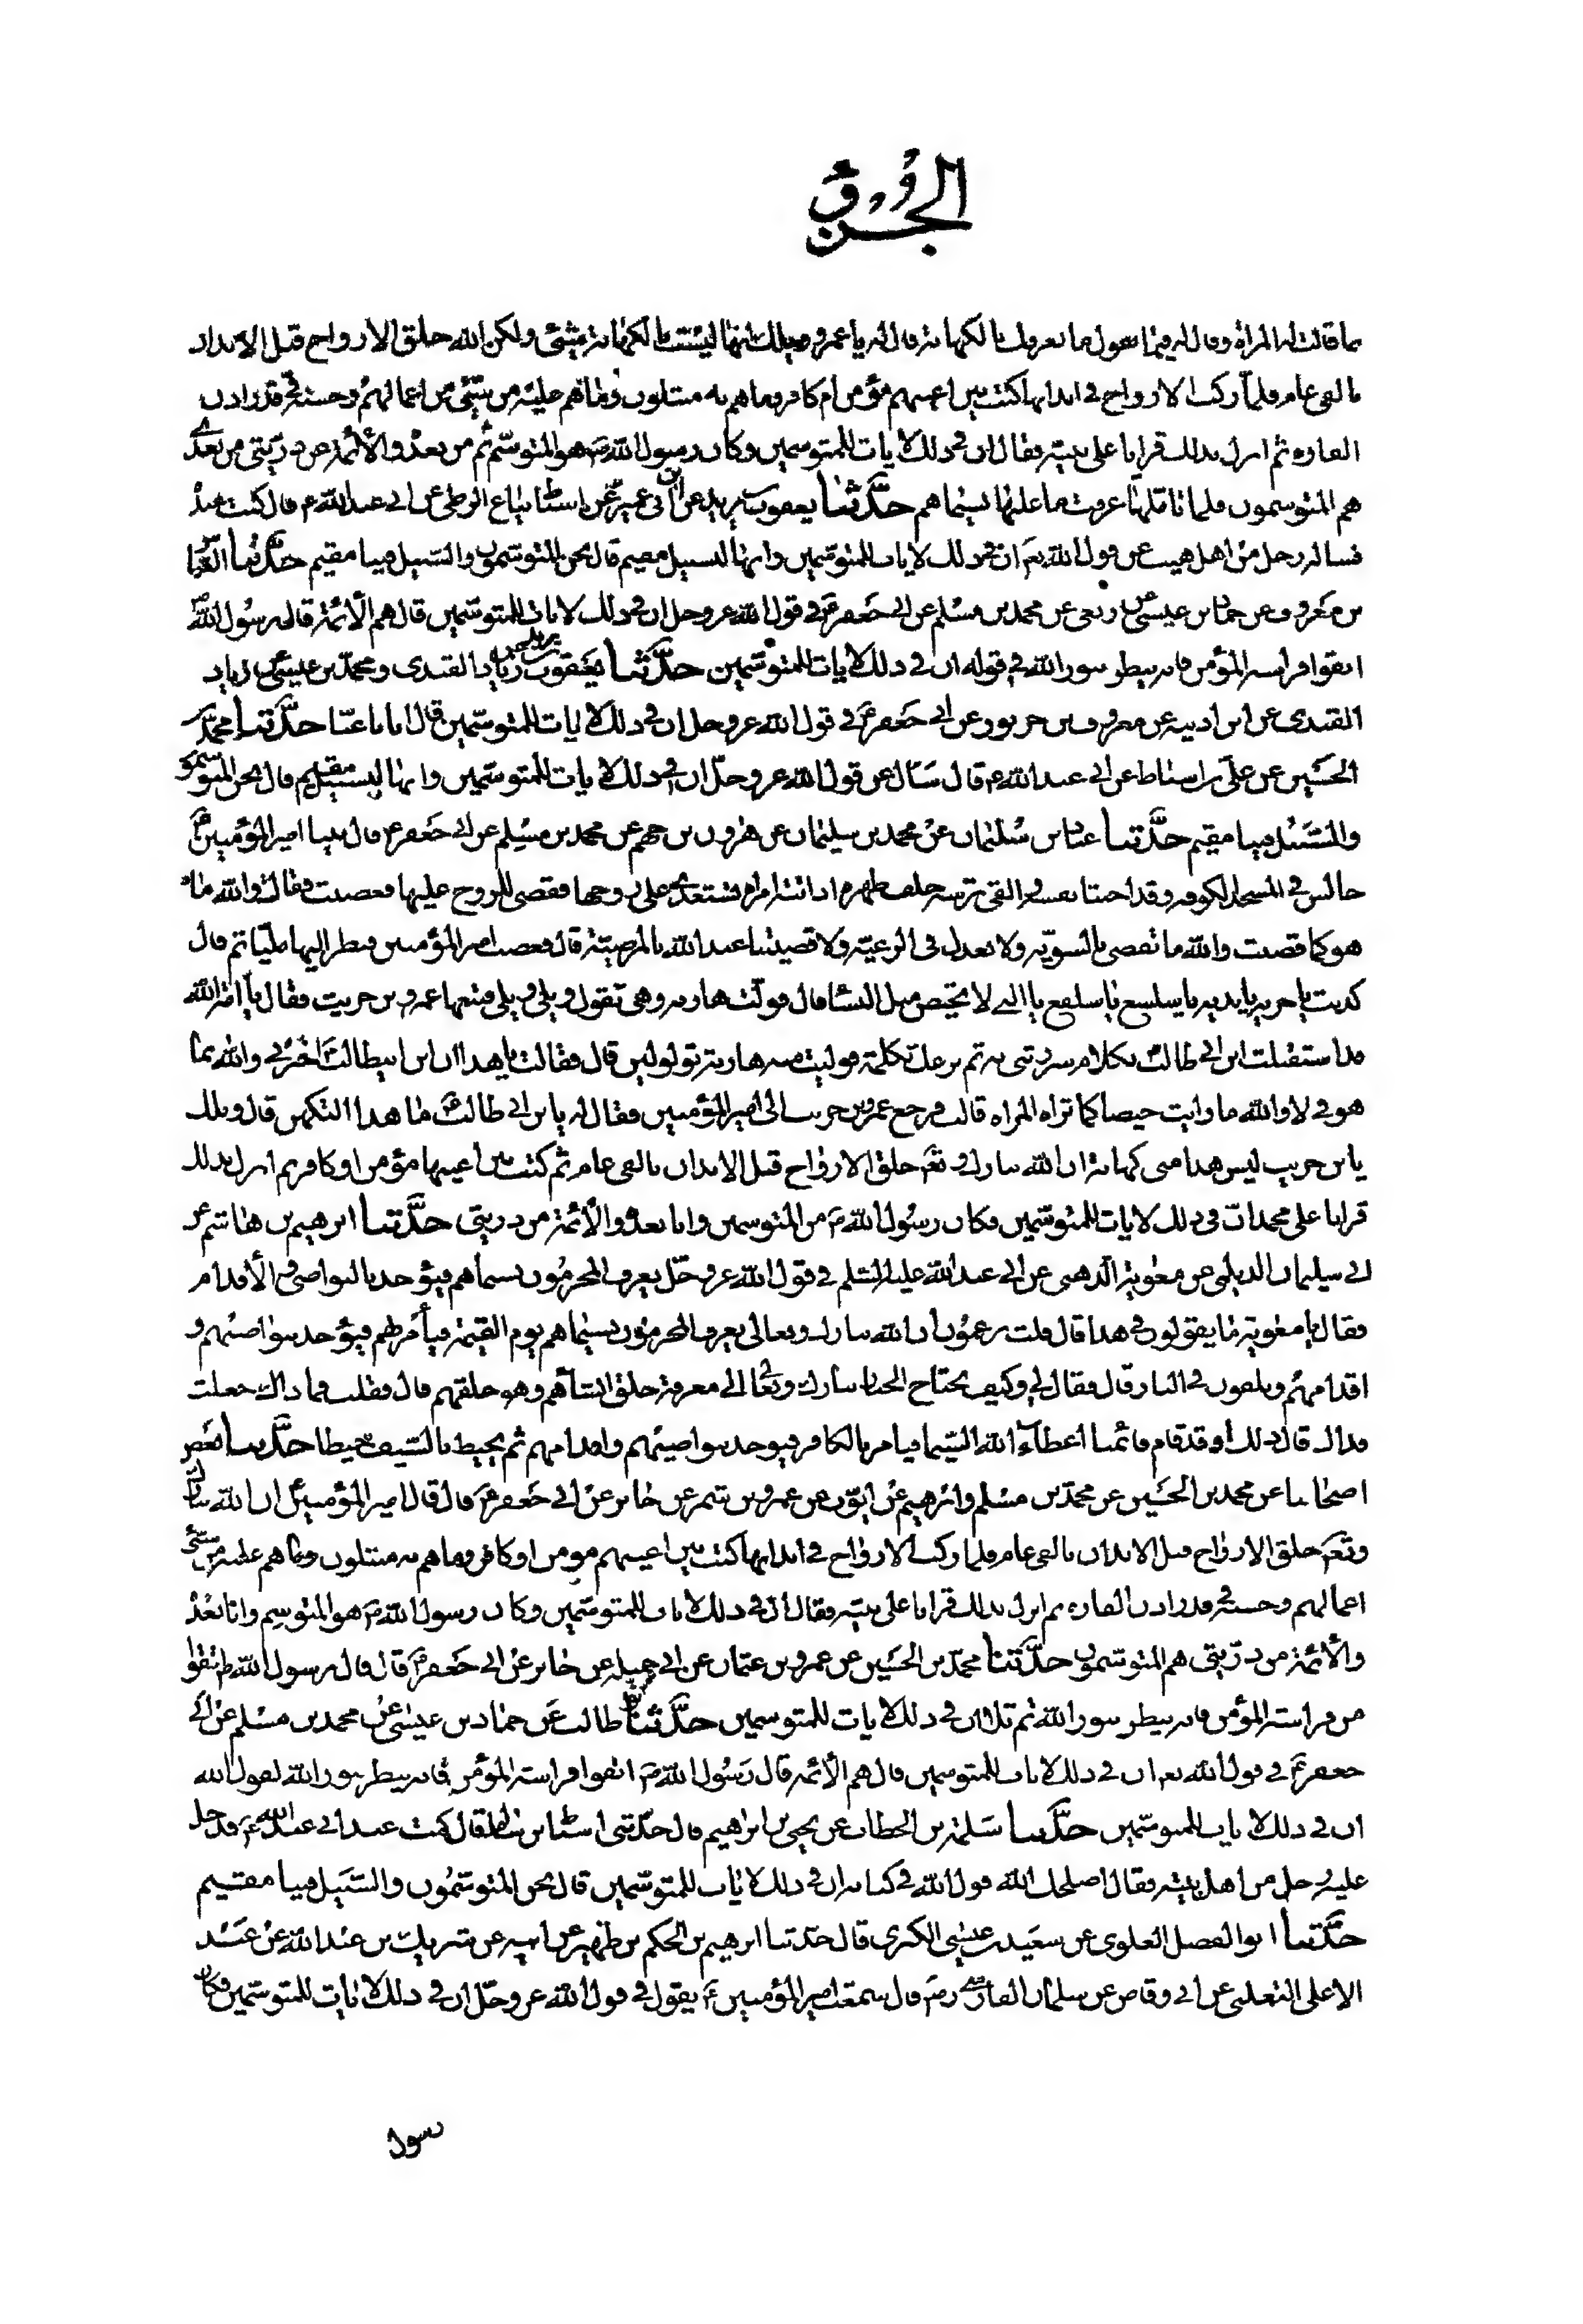 الجزؤ
بما قالت له المرأة وقال له فيما يقول ما نعرفك بالكهانة فقال له يا عمرو ويلك انها ليست بالكهانة بشئ ولكن الله خلق الارواح قبل الابدان
بالفى عام فلما ركب الارواح فى ابدانها كتب بين اعينهم مؤمن ام كافر وما هم به مبتلون وما هم عليه من شئ من اعمالهم وحسنه فى قدر اذن
الفاره ثم انزل بذلك قرانا على نبيه فقال ان فى ذلك لايات للمتوسمين وكان رسول الله ص هو المتوسم ثم من بعده والأئمة من ذريتى من بعدى
هم المتوسمون فلما تاملتها عرفت ما عليها بسيماهم حدثنا يعقوب بن يزيد عن ابن ابى عمير عن اسباط بياع الزطى عن ابى عبد الله ع قال كنت عنده
فساله رجل من اهل هيت عن قول الله تع ان فى ذلك لايات للمتوسمين وانها لبسبيل مقيم قال نحن المتوسمون والسبيل فينا مقيم حدثنا العباس
بن معروف عن حماد بن عيسى عن ربعى عن محمد بن مسلم عن ابى جعفر ع فى قول الله عز وجل ان فى ذلك لايات للمتوسمين قال هم الأئمة قال رسول الله ص
اتقوا فراسة المؤمن فانه ينظر بنور الله فى قوله ان فى ذلك لايات للمتوسمين حدثنا يعقوب بن يزيد عن زياد القندى ومحمد بن عيسى عن زياد
القندى عن ابن اذينه عن معروف بن خربوذ عن ابى جعفر ع فى قول الله عز وجل ان فى ذلك لايات للمتوسمين قال ايانا عنا حدثنا محمد بن
الحسين عن على بن اسباط عن ابى عبد الله ع قال سال عن قول الله عز وجل ان فى ذلك لايات للمتوسمين وانها لبسبيل مقيم قال نحن المتوسمون
والسبيل فينا مقيم حدثنا عباد بن سليمان عن محمد بن سليمان عن هرون بن جهم عن محمد بن مسلم عن ابى جعفر ع قال بينا امير المؤمنين ع
جالس فى المسجد الكوفه وقد احتبا بسيفه والقى ترسه خلف ظهره اذ اتته امراة تستعدى على زوجها فقضى للزوج عليها فغضبت وقالت والله ما
هو كما قضيت والله ما تقضى بالسويه ولا تعدل فى الرعيه ولا قضيتك عند الله بالمرضية قال فغضب امير المؤمنين فنظر اليها مليا ثم قال
كذبت يا جريه يا بذيه يا سلسع يا سلفع يا التى لا تحيض مثل النساء قال فولت هاربه وهى تقول ويلى ويلى فتبعها عمرو بن حريث فقال يا امة الله
قد استقبلت ابن ابى طالب بكلام سررتنى به ثم نزغك بكلمة فوليت منه هاربة تولولين قال فقالت يا هذا ان ابن ابيطالب اخبرنى والله بما
هو فى لا والله ما رايت حيضا كما تراه المراه قالت فرجع عمرو بن حريث الى امير المؤمنين فقال له يا بن ابى طالب ع ما هذا التكهن قال ويلك
يا بن حريث ليس هذا منى كهانة ان الله تبارك وتع خلق الارواح قبل الابدان بالفى عام ثم كتب بين اعينها مؤمن او كافر ثم انزل بذلك
قرانا على محمد ان فى ذلك لايات للمتوسمين فكان رسول الله ص من المتوسمين وانا بعده والأئمة من ذريتى حدثنا ابرهيم بن هاشم عن
ابى سليمان الديلمى عن معوية الدهنى عن ابى عبد الله عليه السلم فى قول الله عز وجل يعرف المجرمون بسيماهم فيؤخذ بالنواصى والأقدام
فقال يا معوية ما يقولون فى هذا قال قلت يزعمون ان الله تبارك وتعالى يعرف المجرمون بسيماهم يوم القيمة فيأمر بهم فيؤخذ بنواصيهم و
اقدامهم ويلقون فى النار قال فقال لى وكيف يحتاج الجبار تبارك وتعالى الى معرفة خلق انشاهم وهو خلقهم قال فقلت فما ذاك جعلت
فداك قال ذلك لو قد قام قائمنا اعطاه الله السيما فيامر بالكافر فيوخذ بنواصيهم واقدامهم ثم يخبط بالسيف خبطا حدثنا بعض
اصحابنا عن محمد بن الحسين عن محمد بن مسلم وابرهيم عن ايوب عن عمرو بن شمر عن جابر عن ابى جعفر ع قال قال امير المؤمنين ان الله تبارك
وتع خلق الارواح قبل الابدان بالفى عام فلما ركب الارواح فى ابدانها كتب بين اعينهم مومن او كافر وما هم به مبتلون وما هم عليه من شئ
اعمالهم وحسنه فى قدر اذن الفاره ثم انزل بذلك قرانا على نبيه فقال ان فى ذلك لايات للمتوسمين وكان رسول الله ص هو المتوسم وانا بعده
والأئمة من ذريتى هم المتوسمون حدثنا محمد بن الحسين عن عمرو بن عثمان عن ابى جميله عن جابر عن ابى جعفر ع قال قال رسول الله ص اتقوا
من فراسة المؤمن فانه ينظر بنور الله ثم تلا ان فى ذلك لايات للمتوسمين حدثنا ابو طالب عن حماد بن عيسى عن محمد بن مسلم عن ابى
جعفر ع فى قول الله تع ان فى ذلك لايات للمتوسمين قال هم الأئمة قال رسول الله ص اتقوا فراسة المؤمن فانه ينظر بنور الله لقول الله
ان فى ذلك لايات للمتوسمين حدثنا سلمة بن الخطاب عن يحيى بن ابراهيم قال حدثنى اسباط بن نباط قال كنت عند ابى عبد الله ع فدخل
عليه رجل من اهل بيته فقال اصلحك الله قول الله فى كتابه ان فى ذلك لايات للمتوسمين قال نحن المتوسمون والسبيل فينا مقيم
حدثنا ابو الفضل العلوى عن سعيد بن عيسى الكزى قال حدثنا ابرهيم بن الحكم بن ظهير عن ابيه عن شريك بن عبد الله عن عبد
الاعلى الثعلبى عن ابى وقاص عن سلمان الفارسى رض قال سمعت امير المؤمنين ع يقول فى قول الله عز وجل ان فى ذلك لايات للمتوسمين فكان
رسول